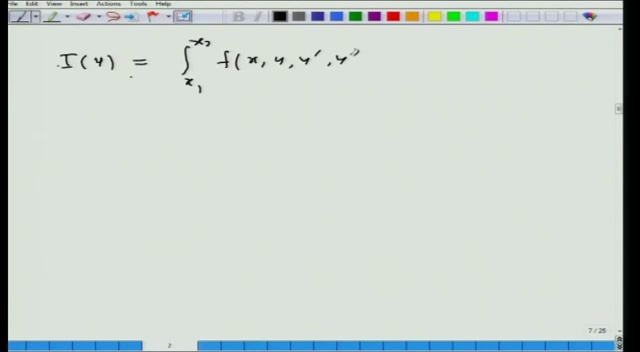 Edit View Insert Actions Tools
I(y) = ∫_{x₁}^{x₂} f(x, y, y′, y″
7 / 25